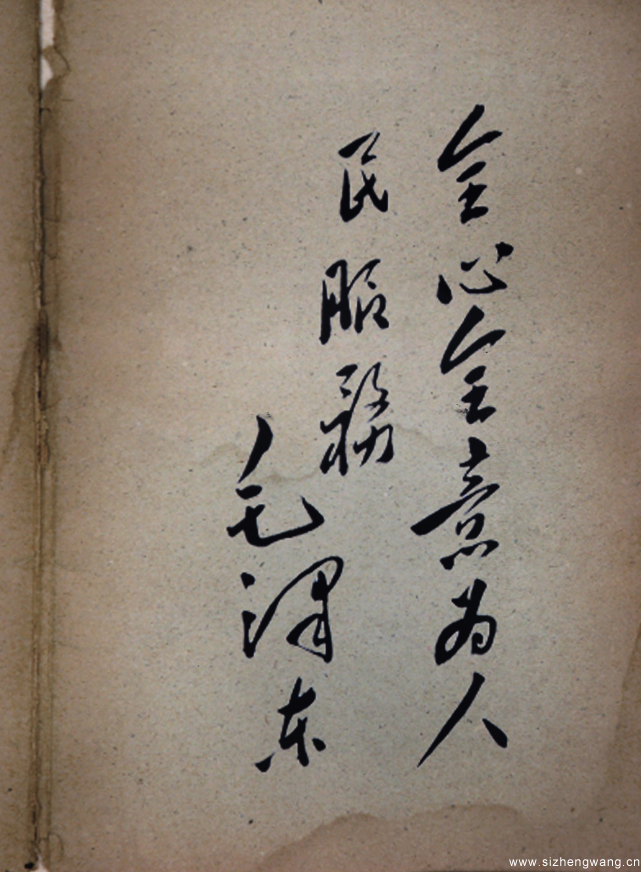 全心全意为人
民服务
毛泽东
www.sizhengwang.cn